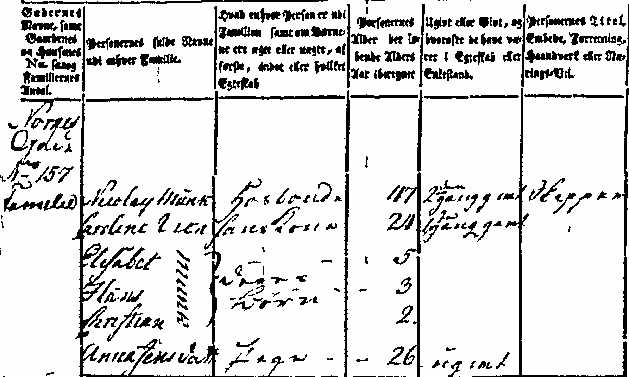 Gadernes Navne, samt Gaardenes og Husenes No. samt Familiernes Antal.
Personernes fulde Navne udi enhver Familie.
Hvad enhver Person er udi Familien samt om Børnene ere ægte eller uægte, af første, andet eller hvilket Egteskab
Personernes Alder det løbende Alders Aar iberegnet
Ugivt eller Givt, og hvorofte de have været i Egteskab eller Enkestand.
Personernes Titel, Embede, Forretning, Haandværk eller Næringsvei.
No 157
Familie Nicolay Munk Hosbonde 2gang givt Skipper
hans Kone 24 1gang givt
Elisabet 5
Hans Munk deres Børn 3
Christian 2
Pige 26 ugivt